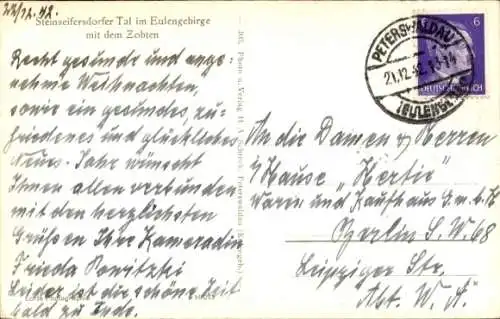 22/12.42.
Steinseifersdorfer Tal im Eulengebirge
mit dem Zobten
Recht gesunde und ange-
nehme Weihnachten,
sowie ein gesundes, zu-
friedenes und glückliches
Neues Jahr wünscht
Ihnen allen verbunden
mit den herzlichsten
Grüßen Ihre Kameradin
Frieda
Leider ist die schöne Zeit
bald zu Ende.
PETERSWALDAU
21.12.42.
(EULENGEB.)
6
DEUTSCHES REICH
An die Damen & Herren
Hause "Hertie"
Waren und Kaufhaus G.m.b.H
Berlin S.W. 68
Leipziger Str.
Abt. W. A.